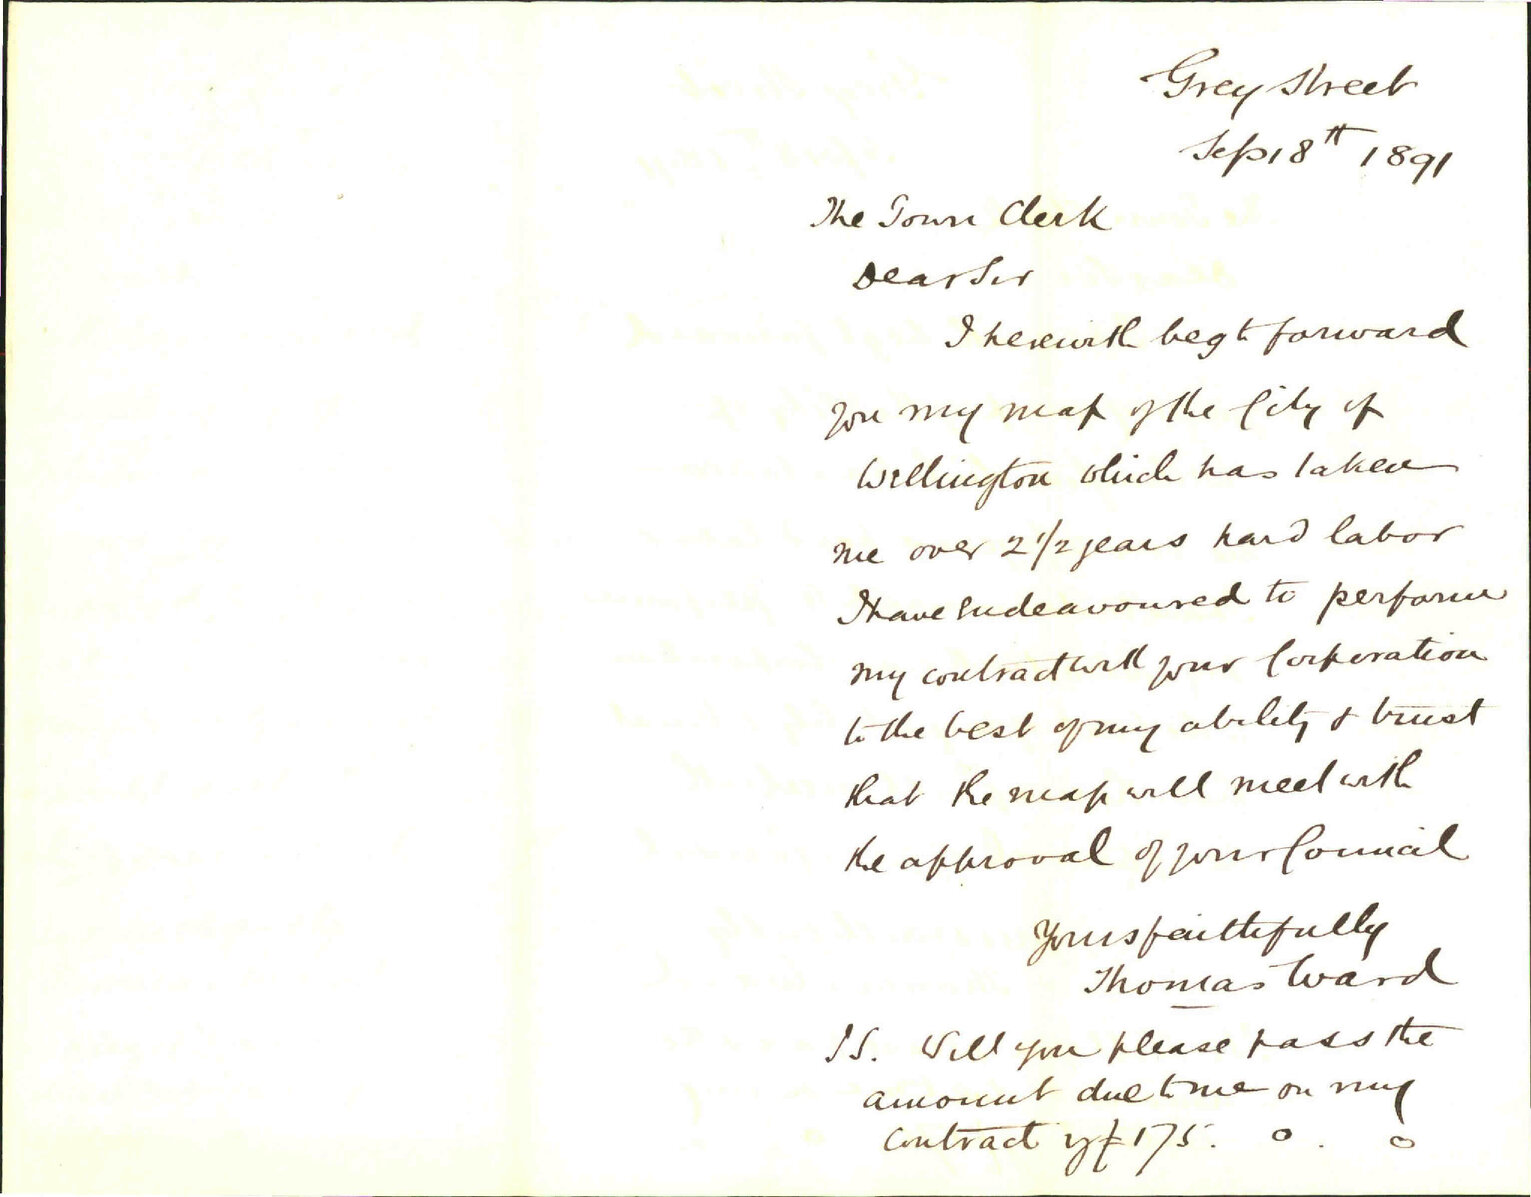 Grey Street
Sep 18th 1891
The Town Clerk
Dear Sir
I herewith beg to forward
you my map of the City of
Wellington which has taken
me over 2 1/2 years hard labor
I have endeavoured to perform
my contract with your Corporation
to the best of my ability & trust
that the map will meet with
the approval of your Council
Yours faithfully
Thomas Ward
P.S. Will you please pass the
amount due to me on my
contract of £175. 0. 0